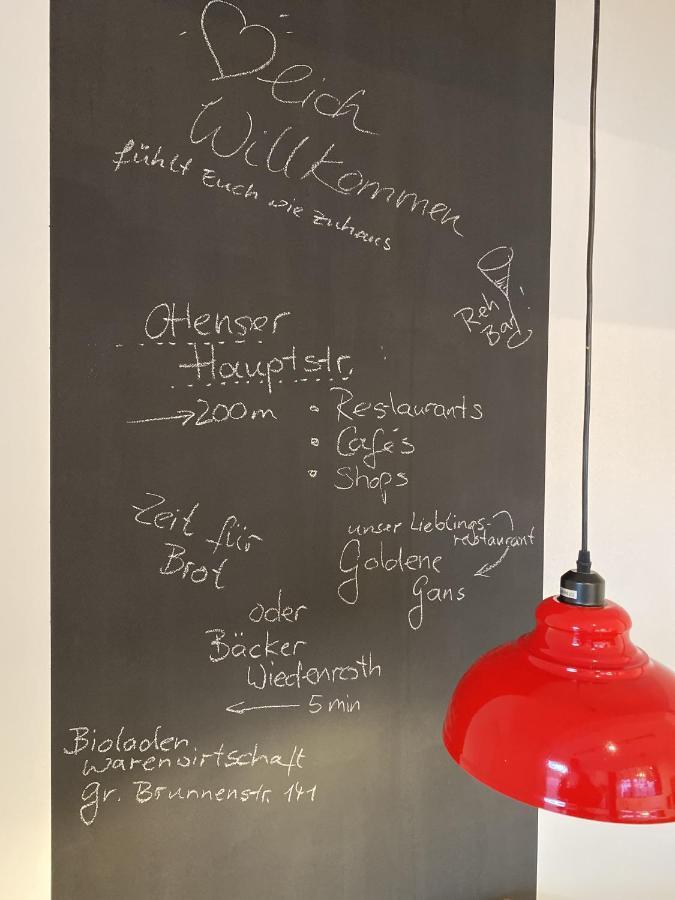 ♡lich
Willkommen
fühlt Euch wie zuhaus
Reh
Bar
Ottenser
Hauptstr.
→ 200 m
• Restaurants
• Cafés
• Shops
Zeit für
Brot
unser Lieblings-
restaurant
Goldene
Gans
oder
Bäcker
Wiedenroth
← 5 min
Bioladen
warenwirtschaft
gr. Brunnenstr. 141